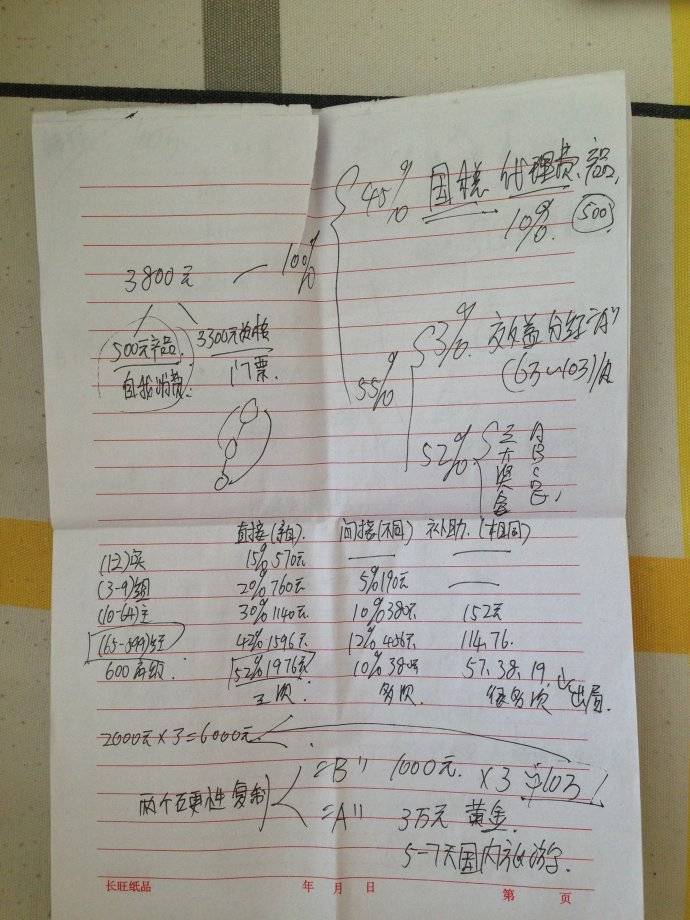 45% 国税 代理费、产品
10% 500
3800元 — 100%
500元产品 3300元资格
自我消费 门票
55%
3% 效益分红
52% 三大奖金 A B C D E
直接(亲自) 间接(不同) 补助(相同)
(1-2)实 15% 570元
(3-9)组 20% 760元 5% 190元
(10-64)主 30% 1140元 10% 380元 152元
(65-599)经 42% 1596元 12% 456元 114.76
600高级 52% 1976元 10% 380元 57.38.19 出局
多次
2000元×3=6000元
两个 复制 =B" 1000元 ×3
=A" 3万元 黄金
5-7天国内旅游
长旺纸品 年 月 日 第 页